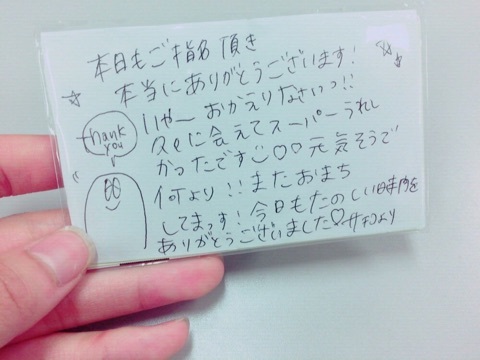 本日もご指名頂き
本当にありがとうございます!
いやーおかえりなさいっ!!
に会えてスーパーうれし
かったです♡♡元気そうで
何より!!またおまち
してまっす!今日もたのしい時間を
ありがとうございました♡サチコより
thank
you